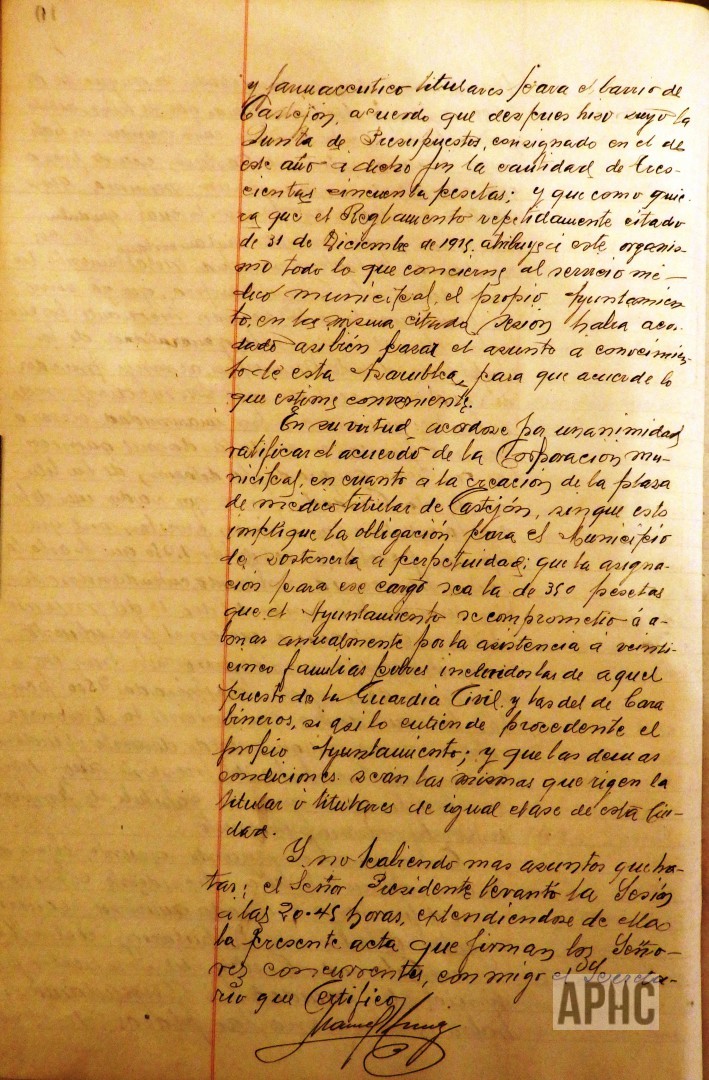 y farmaceutico titulares para el barrio de
Castejón, acuerdo que despues hizo suyo la
Junta de Presupuestos, consignado en el de
este año a dicho fin la cantidad de tres-
cientas cincuenta pesetas; y que como quie-
ra que el Reglamento repetidamente citado
de 31 de Diciembre de 1915, atribuye á este organis-
mo todo lo que concierne al servicio mé-
dico municipal, el propio Ayuntamien-
to, en la misma citada sesión habia acor-
dado asi bién pasar el asunto a conocimien-
to de esta Asamblea, para que acuerde lo
que estime conveniente.
En su virtud, acordose por unanimidad,
ratificar el acuerdo de la Corporación mu-
nicipal, en cuanto á la creación de la plaza
de medico titular de Castejón, sin que esto
implique la obligación para el Municipio
de sostenerla a perpetuidad; que la asigna-
ción para ese cargo sea la de 350 pesetas
que el Ayuntamiento se comprometio á a-
bonar anualmente por la asistencia á veinti-
cinco familias pobres incluidos las de aquel
puesto de la Guardia Civil y las del de Cara
bineros, si asi lo entiende procedente el
propio Ayuntamiento; y que las demas
condiciones sean las mismas que rigen la
titular ó titulares de igual clase de esta Ciu-
dad.
Y no habiendo mas asuntos que tra-
tar; el Señor Presidente levantó la Sesión
á las 20.45 horas, extendiendose de ella
la presente acta que firman los Seño-
res concurrentes, conmigo el Secreta-
rio que Certifico
APHC